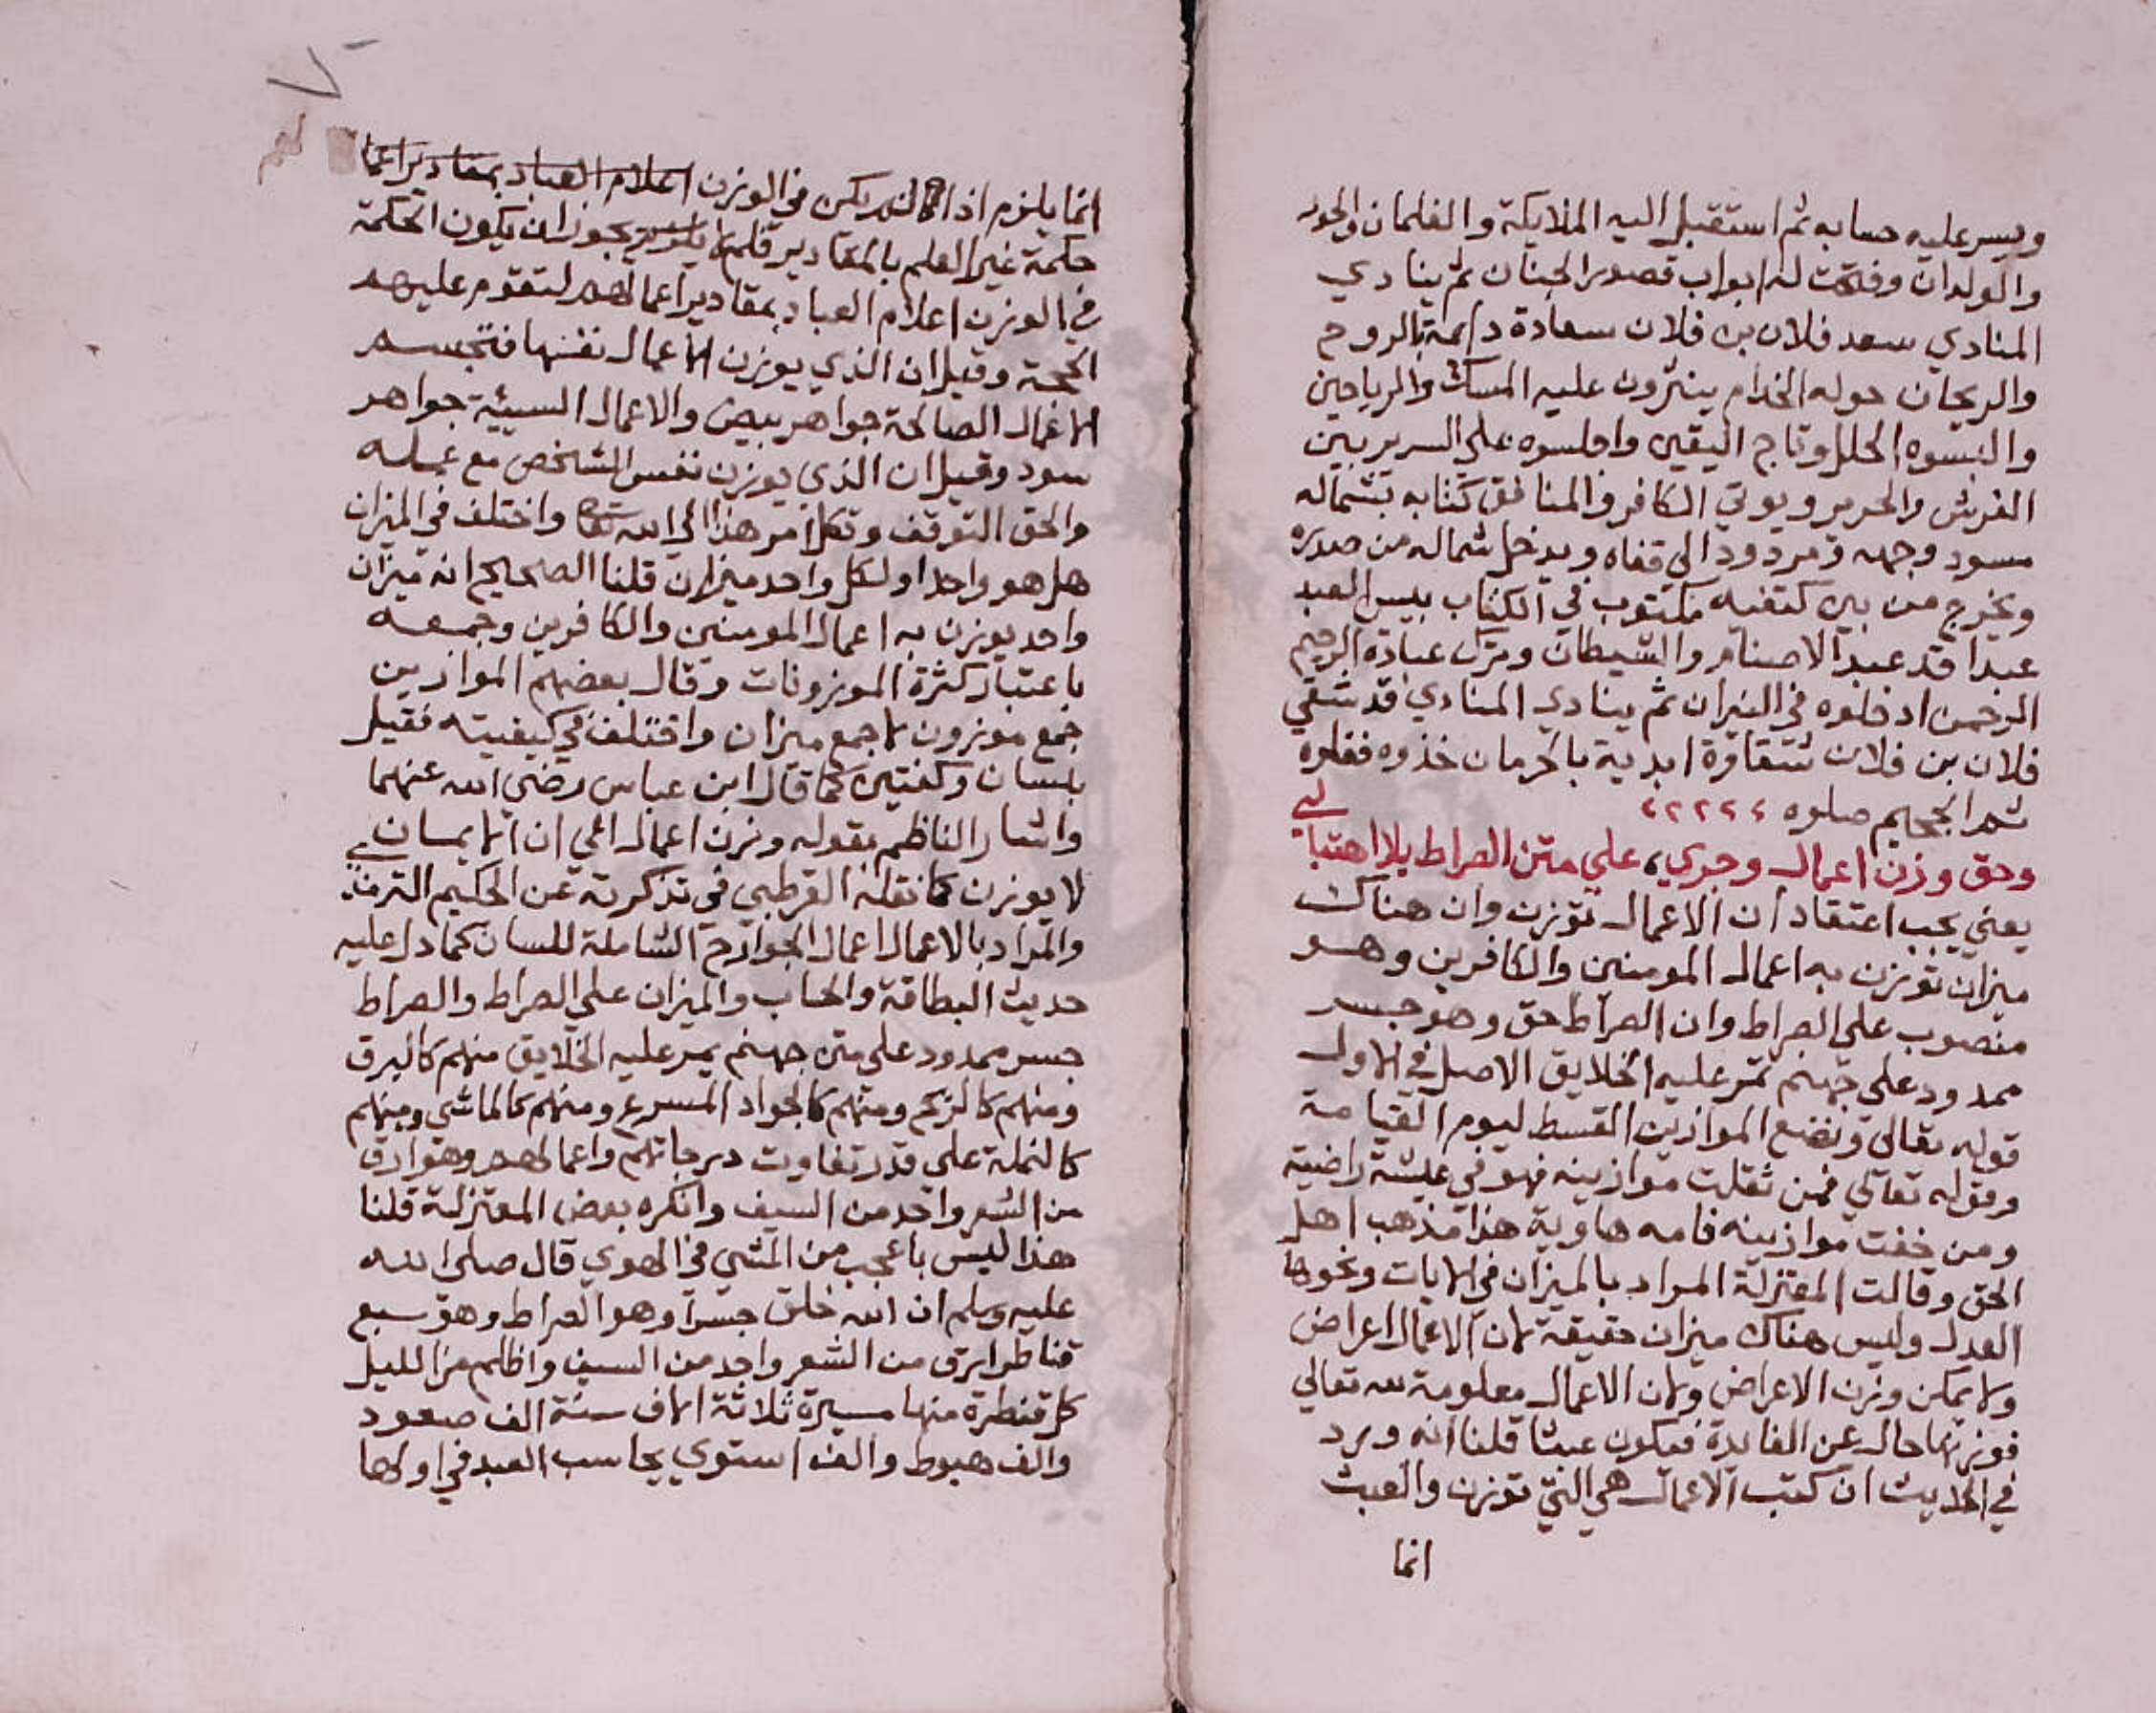 ويسر عليه حسابه ثم استقبل اليه الملايكة والغلمان والحور
والولدان وفتحت له ابواب قصور الجنان ثم ينادي
المنادي سعد فلان بن فلان سعادة دايمة بالروح
والريحان حوله الخدام ينثرون عليه المسك والرياحين
والبسوه الحلل وتاج اليقين واجلسوه على السرير بين
الفرش والحرير ويوتي الكافر والمنافق كتابه بشماله
مسود وجهه ومردود الي قفاه ويدخل شماله من صدره
ويخرج من بين كتفيه مكتوب في الكتاب بيس العبد
عبدا قد عبد الاصنام والشيطان وترك عبادة الرحيم
الرحمن ادخلوه في النيران ثم ينادي المنادي قد شقي
فلان بن فلان شقاوة ابدية بالحرمان خذوه فغلوه
ثم الجحيم صلوه
وحق وزن اعمال وجري، علي متن الصراط بلا اهتبا لي
يعني يجب اعتقاد ان الاعمال توزن وان هناك
ميزان توزن به اعمال المومنين والكافرين وهو
منصوب على الصراط وان الصراط حق وهو جسر
ممدود على جهنم تمر عليه الخلايق الاصل في الاول
قوله تعالى ونضع الموازين القسط ليوم القيامة
وقوله تعالي فمن ثقلت موازينه فهو في عيشة راضية
ومن خفت موازينه فامه هاوية هذا مذهب اهل
الحق وقالت المعتزلة المراد بالميزان في الايات ونحوها
العدل وليس هناك ميزان حقيقة لان الاعمال اعراض
ولا يمكن وزن الاعراض ولان الاعمال معلومة لله تعالي
فوزنها خال عن الفايدة فيكون عبثا قلنا انه ورد
في الحديث ان كتب الاعمال هي التي توزن والعبث
انما
انما يلزم اذا لم يكن في الوزن اعلام العباد بمقادير اعما
حكمة غير العلم بالمقادير فلم لا يجوز ان يكون الحكمة
في الوزن اعلام العباد بمقادير اعمالهم لتقوم عليهم
الحجة وقيل ان الذي يوزن الاعمال نفسها فتجسم
الاعمال الصالحة جواهر بيض والاعمال السيئة جواهر
سود وقيل ان الذي يوزن نفس الشخص مع عمله
والحق التوقف وتكل امر هذا الي الله تعالى واختلف في الميزان
هل هو واحد او لكل واحد ميزان قلنا الصحيح انه ميزان
واحد يوزن به اعمال المومنين والكافرين وجمعه
باعتبار كثرة الموزونات وقال بعضهم الموازين
جمع موزون لا جمع ميزان واختلف في كيفيته فقيل
بلسان وكفتين كما قال ابن عباس رضي الله عنهما
واشار الناظم بقوله وزن اعمال الي ان الايمان
لا يوزن كما نقله القرطبي في تذكرته عن الحكيم الترمذي
والمراد بالاعمال اعمال الجوارح الشاملة للسان كما دل عليه
حديث البطاقة والحساب والميزان علي الصراط والصراط
جسر ممدود على متن جهنم يمر عليه الخلايق منهم كالبرق
ومنهم كالريح ومنهم كالجواد المسرع ومنهم كالماشي ومنهم
كالنملة على قدر تفاوت درجاتهم واعمالهم وهو ادق
من الشعر واحد من السيف وانكره بعض المعتزلة قلنا
هذا ليس باعجب من المشي في الهوي قال صلى الله
عليه وسلم ان الله خلق جسرا وهو الصراط وهو سبع
قناطر ارق من الشعر واحد من السيف واظلم من الليل
كل قنطرة منها مسيرة ثلاثة الاف سنة الف صعود
والف هبوط والف استوي يحاسب العبد في اولها